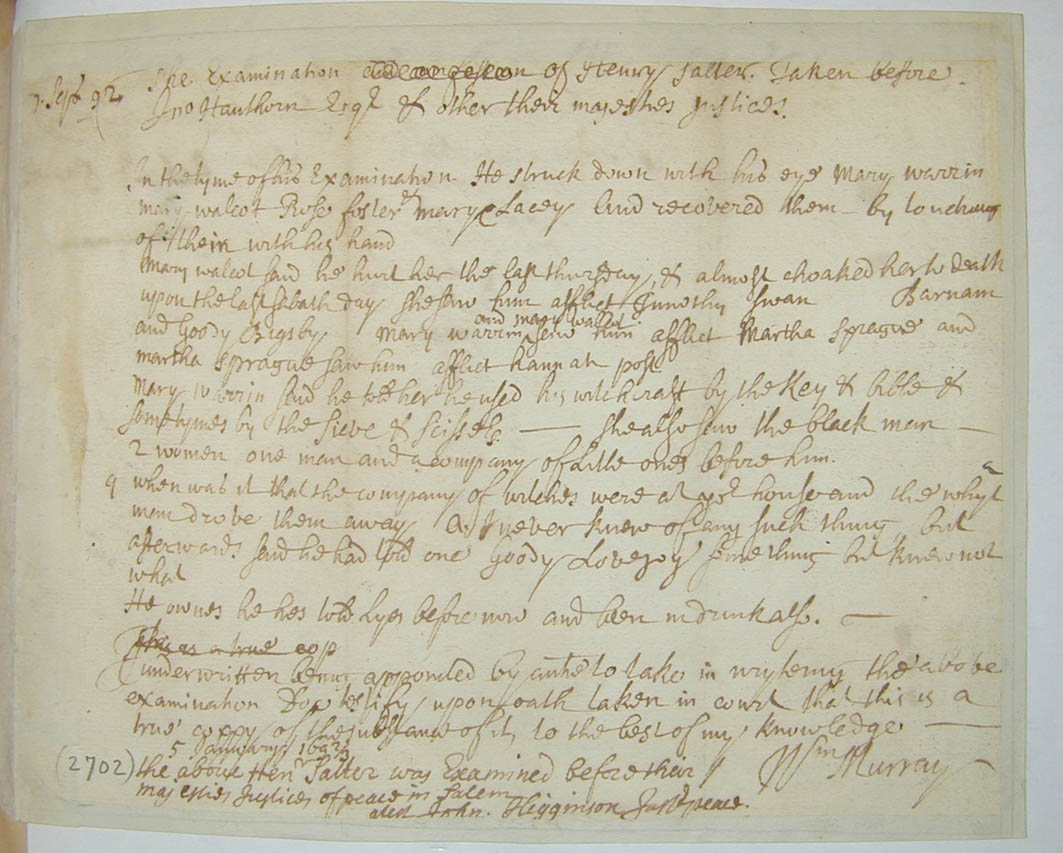 7. Sept 92
The Examination and confession of Henry Salter. Taken before
Jno Hauthorn Esqr & other their majesties justices.
In the tyme of his Examination He struck down with his eye Mary warrin
mary walcot Rose foster & mary Lacey and recovered them by touching
of them with his hand
Mary walcot said he hurt her the last thursday, & almost choaked her to death
upon the last sabath day she saw him afflict Timothy Swan Barnam
and Goody Bigsby Mary warrin and mary walcot saw him afflict Martha Sprague and
martha Sprague saw him afflict hannah post
Mary warrin said he told her he used his witchcraft by the Key & bible &
sometymes by the sieve & scissers. — she also saw the black man —
2 women one man and a company of little ones before him.
q when was it that the company of witches were at yor house and the whyt
man drove them away A. I never knew of any such thing, but
afterwards said he had told one Goody Lovejoy something but knew not
what
He ownes he hes told lyes before now and been in drink also. —
This is a true cop
I underwritten being appointed by authe to take in wryteing the above
examination Doe testify upon oath taken in court that this is a
true coppy of the substance of it, to the best of my knowledge —
5 January 1692/3
Wm Murray
(2702)
the above Henr Salter was Examined before their
majesties Justices of peace in Salem
atest John. Higginson Just peace.